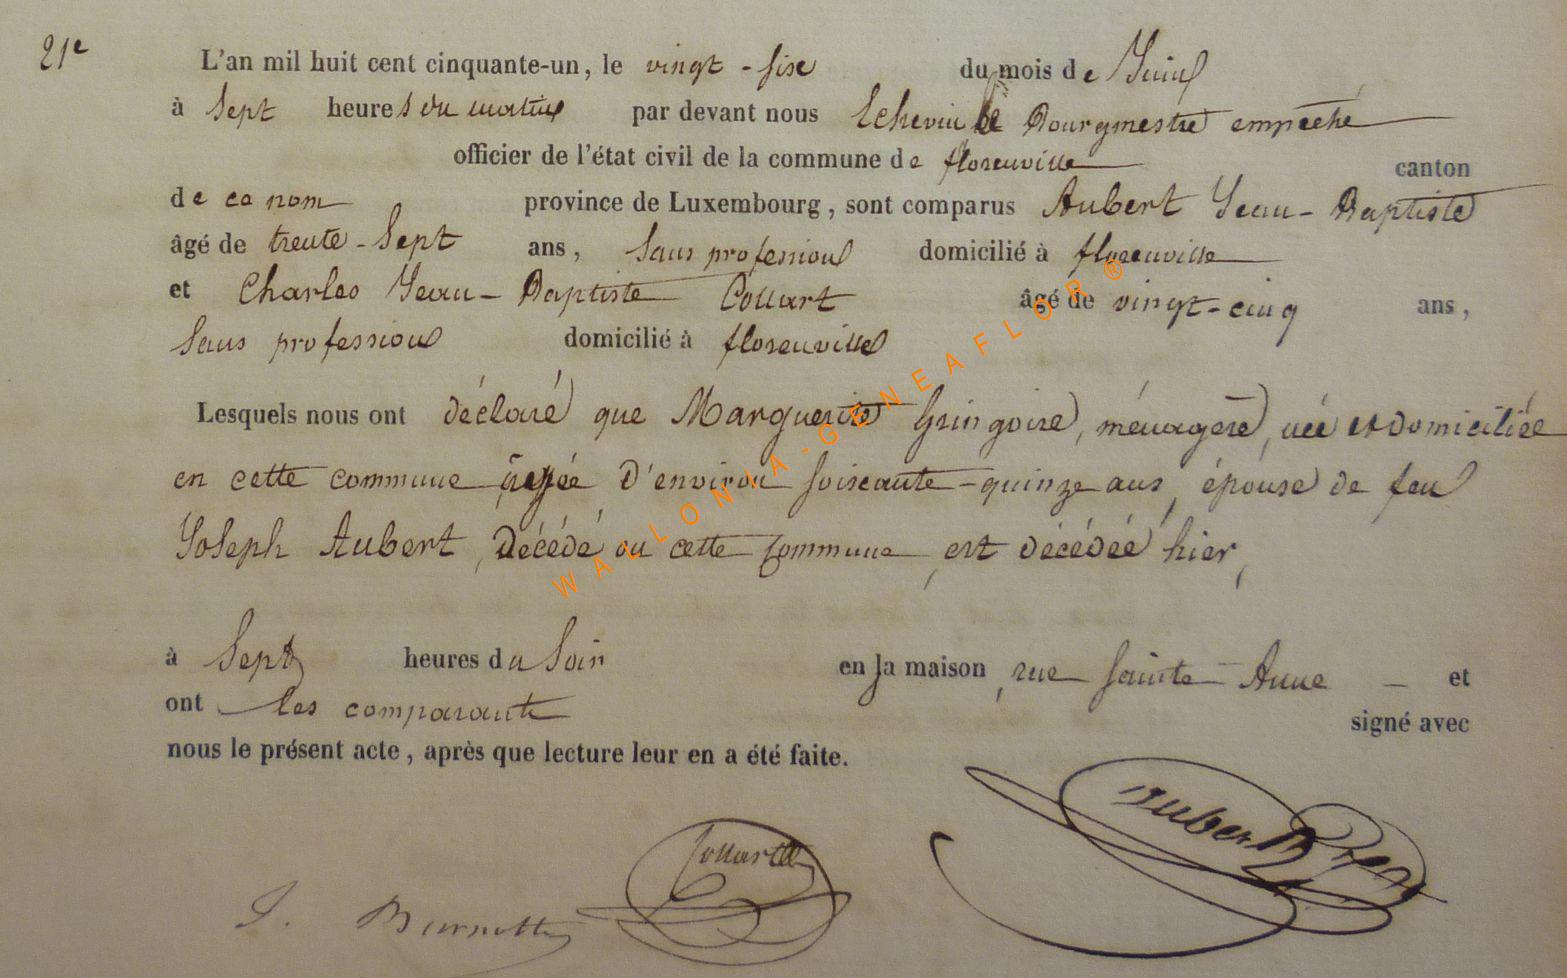 21e
L'an mil huit cent cinquante-un, le vingt-six du mois de Juin
à Sept heures du matin par devant nous Echevin, le Bourgmestre empêché
officier de l'état civil de la commune de florenville canton
de ce nom province de Luxembourg, sont comparus Aubert Jean-Baptiste
âgé de trente-Sept ans, Sans profession domicilié à florenville
et Charles Jean-Baptiste Collart âgé de vingt-cinq ans,
Sans profession domicilié à florenville
Lesquels nous ont déclaré que Marguerite Gringoire, ménagère, née et domiciliée
en cette commune âgée d'environ soixante-quinze ans, épouse de feu
Joseph Aubert, décédé en cette commune, est décédée hier,
à Sept heures du Soir en la maison, rue Sainte-Anne et
ont les comparants signé avec
nous le présent acte, après que lecture leur en a été faite.
Aubert
Collart
J.
WALLONIA-GENEAFLOR®